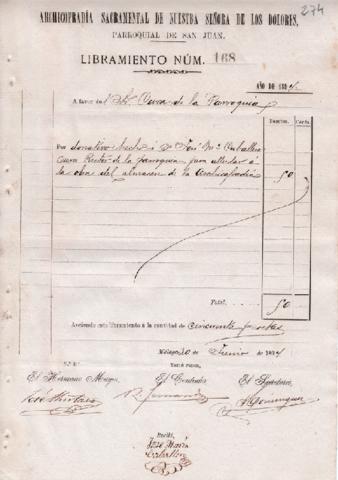 274
ARCHICOFRADÍA SACRAMENTAL DE NUESTRA SEÑORA DE LOS DOLORES,
PARROQUIAL DE SAN JUAN.
LIBRAMIENTO NÚM. 168
AÑO DE 188
A favor del Sr. Cura de la Parroquia
Pesetas. Cents.
Por donativo hecho á D. José Mª Caballero
cura Rector de la parroquia para ayudar á
la obra del almacen de la Archicofradía 50
Total. 50
Asciende este libramiento á la cantidad de cincuenta pesetas
Málaga 10 de Junio de 188
El Hermano Mayor, El Contador El Secretario,
José
Fernandez
Dominguez
Recibí,
José María
Caballero